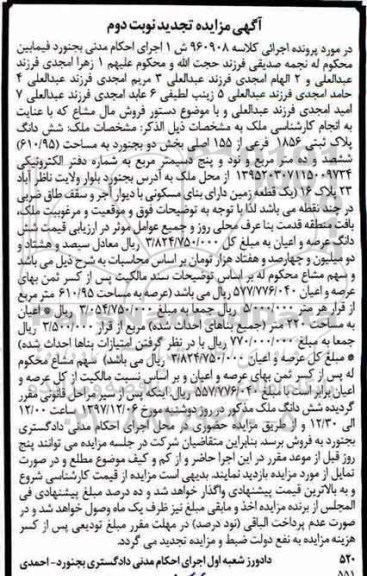 آگهی مزایده تجدید نوبت دوم
در مورد پرونده اجرائی کلاسه ۹۶۰۹۰۸ ش ۱ اجرای احکام مدنی بجنورد فیمابین
محکوم له نجمه صدیقی فرزند حجت الله و محکوم علیهم ۱ زهرا امجدی فرزند
عبدالعلی و ۲ الهام امجدی فرزند عبدالعلی ۳ مریم امجدی فرزند عبدالعلی ۴
حامد امجدی فرزند عبدالعلی ۵ زینب لطیفی ۶ عابد امجدی فرزند عبدالعلی ۷
امید امجدی فرزند عبدالعلی و با موضوع دستور فروش مال مشاع که با عنایت
به انجام کارشناسی ملک به مشخصات ذیل الذکر: مشخصات ملک: شش دانگ
پلاک ثبتی ۱۸۵۶ فرعی از ۱۵۵ اصلی بخش دو بجنورد به مساحت (۶۱۰/۹۵)
ششصد و ده متر مربع و نود و پنج دسیمتر مربع به شماره دفتر الکترونیکی
۱۳۹۵۲۰۳۰۷۱۱۵۰۰۹۷۳۴ از محل ملک به آدرس بجنورد بلوار ولایت ناظر آباد
۲۳ پلاک ۱۶ (یک قطعه زمین دارای بنای مسکونی با دیوار آجر و سقف طاق ضربی
در چند نقطه می باشد لذا با توجه به توضیحات فوق و موقعیت و مرغوبیت ملک،
بافت منطقه قدمت بنا عرف محلی روز و جمیع عوامل موثر در ارزیابی قیمت شش
دانگ عرصه و اعیان به مبلغ کل ۳/۸۲۴/۷۵۰/۰۰۰ ریال معادل سیصد و هشتاد و
دو میلیون و چهارصد و هفتاد هزار تومان بر اساس محاسبات به شرح ذیل می باشد
و سهم مشاع محکوم له بر اساس توضیحات سند مالکیت پس از کسر ثمن بهای
عرصه و اعیان ۵۷۷/۷۷۶/۰۴۰ ریال می باشد (عرصه به مساحت ۶۱۰/۹۵ متر مربع
از قرار هر متر ۵/۰۰۰/۰۰۰ ریال جمعا به مبلغ ۳/۰۵۴/۷۵۰/۰۰۰ ریال * اعیان
به مساحت ۲۲۰ متر (جمیع بناهای احداث شده) مربع از قرار ۳/۵۰۰/۰۰۰ ریال
جمعا به مبلغ ۷۷۰/۰۰۰/۰۰۰ ریال با در نظر گرفتن امتیازات بناها احداث شده)
* مبلغ کل عرصه و اعیان ۳/۸۲۴/۷۵۰/۰۰۰ ریال می باشد) سهم مشاع محکوم
له پس از کسر ثمن بهای عرصه و اعیان و بر اساس نسبت مالکیت از کل عرصه و
اعیان برابر است با مبلغ ۵۵۷/۷۷۶/۰۴۰ ریال اینکه پس از سیر مراحل قانونی مقرر
گردیده شش دانگ ملک مذکور در روز دوشنبه مورخ ۱۳۹۷/۱۲/۰۶ ساعت ۱۲/۰۰
الی ۱۲/۳۰ و از طریق مزایده حضوری در محل اجرای احکام مدنی دادگستری
بجنورد به فروش برسد، بنابراین متقاضیان شرکت در جلسه مزایده می توانند پنج
روز قبل از موعد مقرر در این اجرا حاضر و از کم و کیف موضوع مطلع و در صورت
تمایل از مورد مزایده بازدید نمایند. بدیهی است مزایده از قیمت کارشناسی شروع
و به بالاترین قیمت پیشنهادی واگذار خواهد شد و ده درصد مبلغ پیشنهادی فی
المجلس از برنده مزایده اخذ و مابقی مبلغ نیز ظرف یک ماه وصول خواهد شد و در
صورت عدم پرداخت الباقی (نود درصد) در مهلت مقرر مبلغ تودیعی پس از کسر
هزینه مزایده به نفع دولت ضبط و مزایده تجدید می گردد.
۵۲۰ دادورز شعبه اول اجرای احکام مدنی دادگستری بجنورد - احمدی